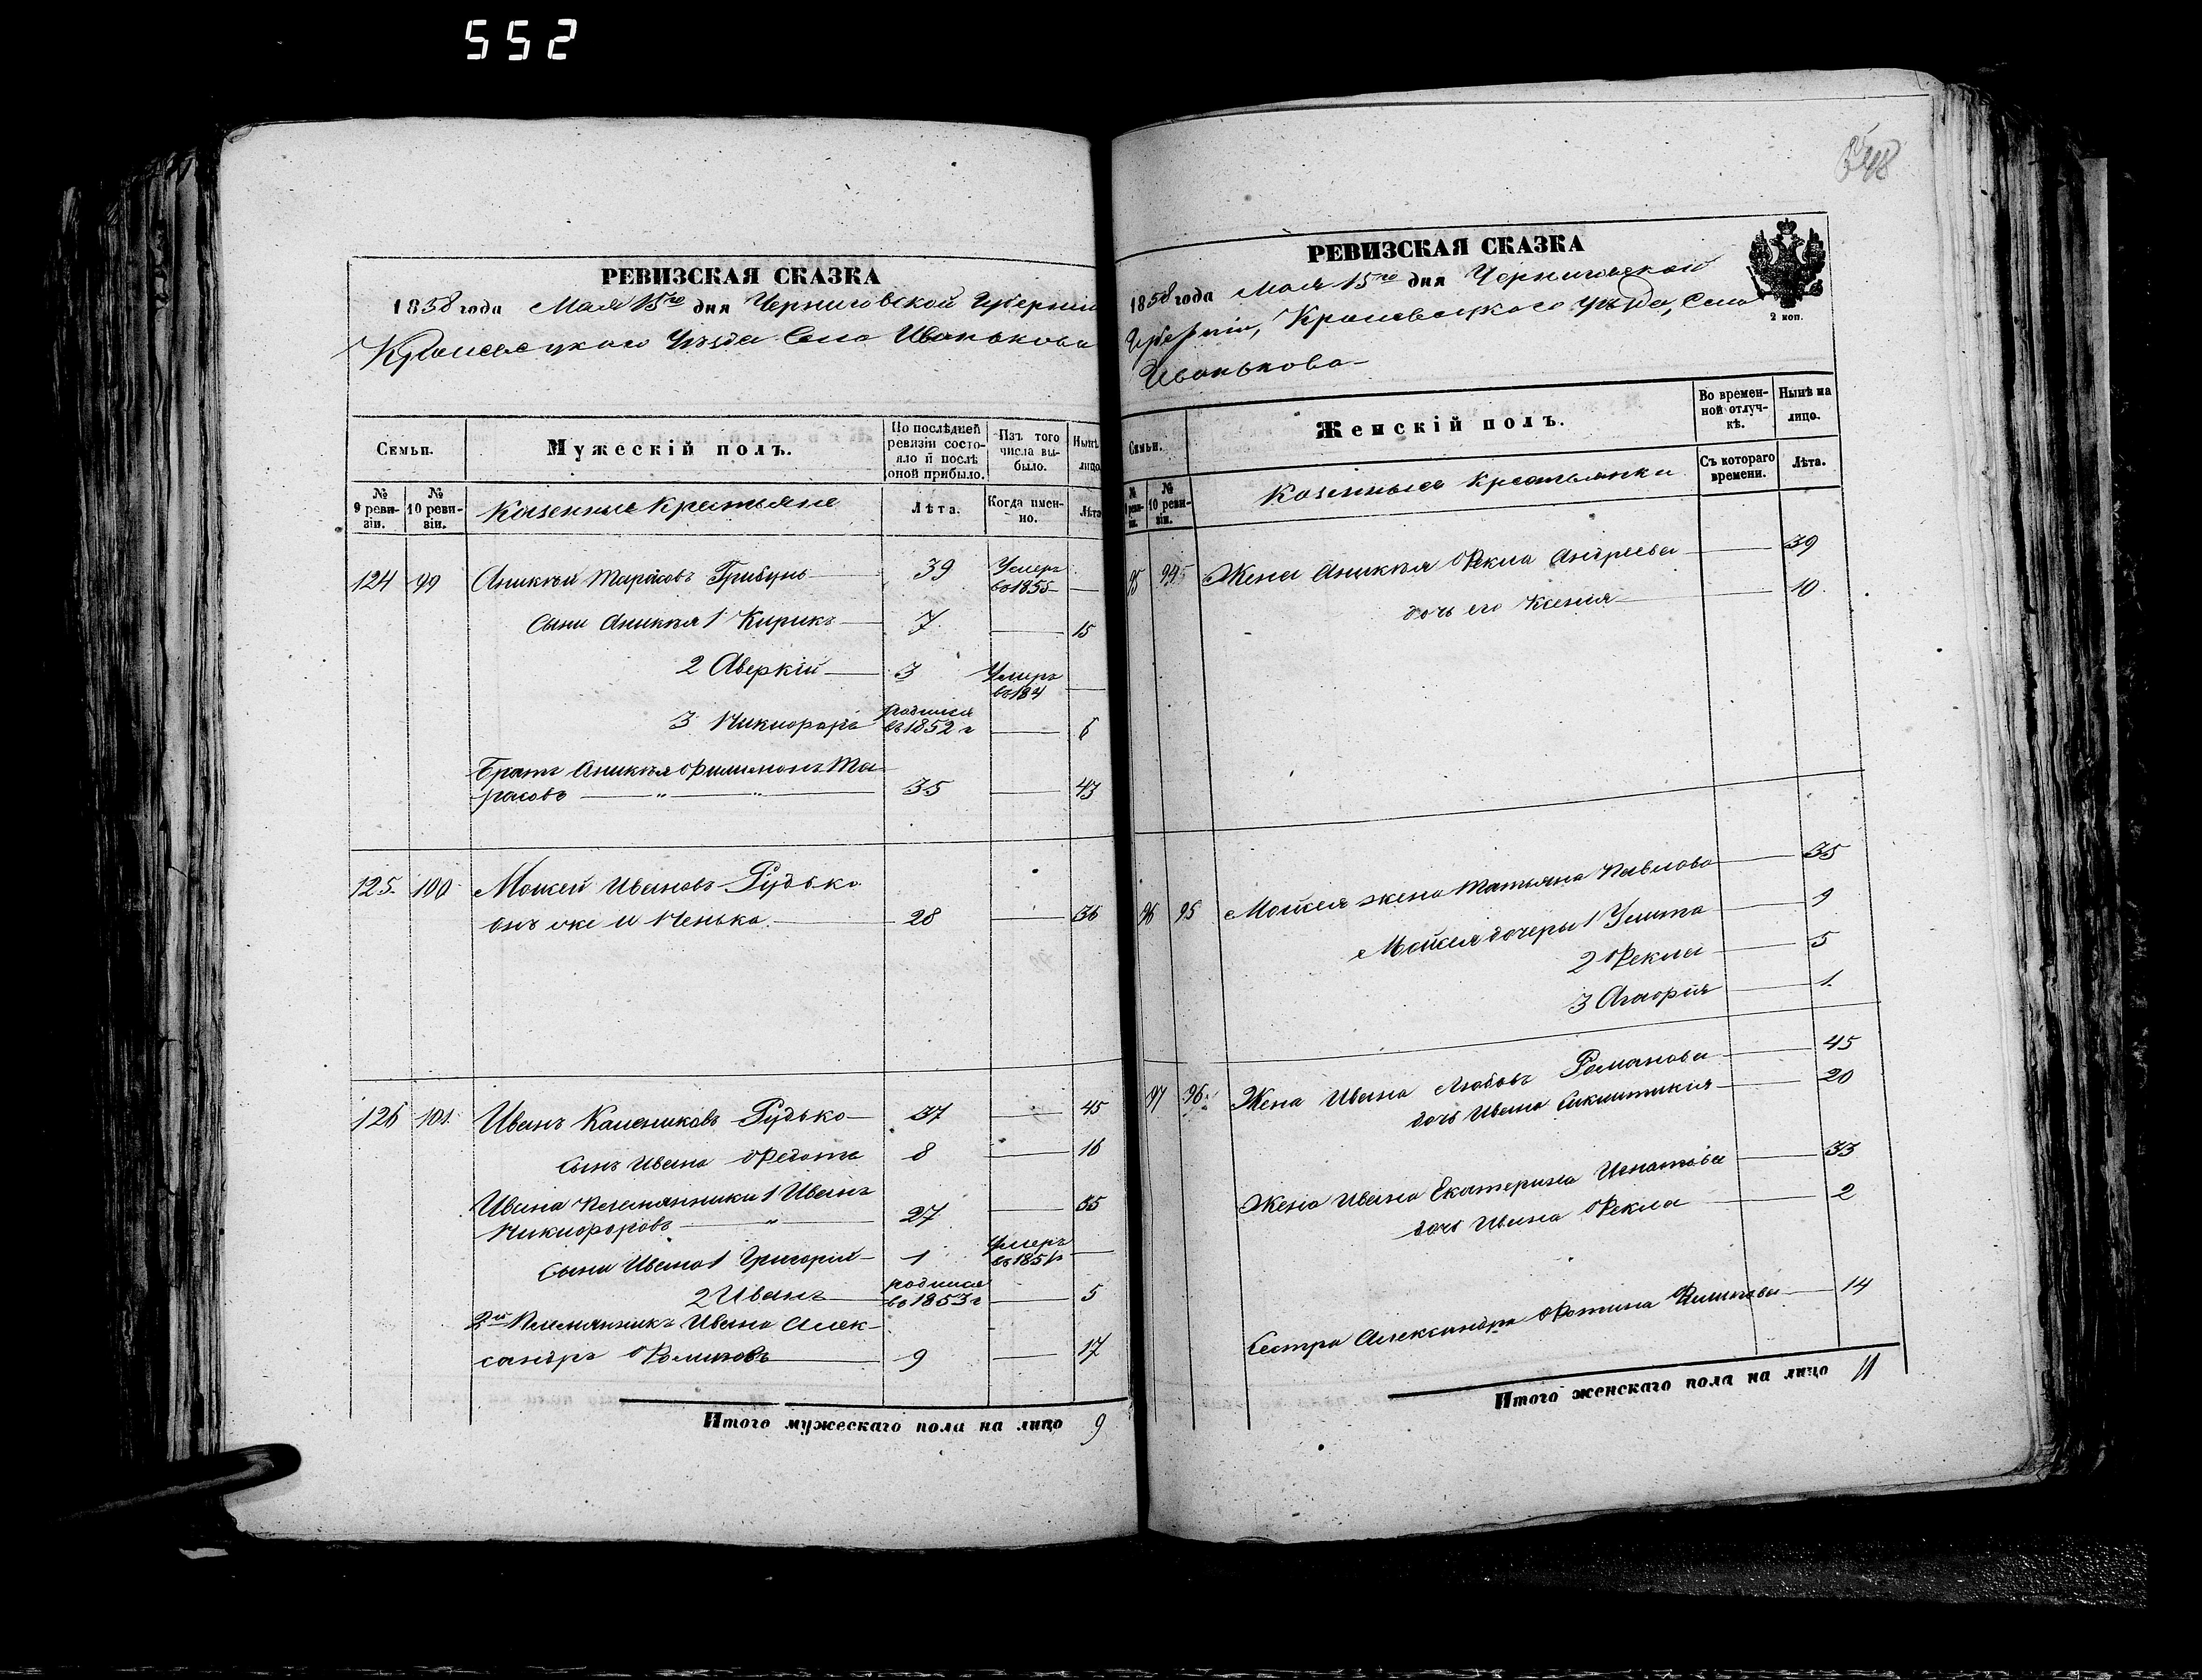 552
548
РЕВИЗСКАЯ СКАЗКА
1858 года Мая 15го дня Черниговской Губерніи
Кролевецкаго Уѣзда Села Иванькова
Семьи.
Мужескій полъ.
По послѣдней ревизіи состояло и послѣ оной прибыло.
Изъ того числа выбыло.
Нынѣ лицо
№ 9 ревизіи.
№ 10 ревизіи.
Казенные Крестьяне
Лѣта.
Когда именно.
Лѣта
124 99 Аникѣй Тарасовъ Грибунъ 39 Умеръ въ 1855
Сыны Аникѣя 1 Кирикъ 7 15
2 Аверкій 3 Умеръ въ 184
3 Никифоръ родился въ 1852 г 6
Братъ Аникѣя Филимонъ Та-
расовъ 35 43
125. 100 Мойсей Ивановъ Рудько
онъ же и Ченька 28 36
126 101. Иванъ Калениковъ Рудько 37 45
Сынъ Ивана Федотъ 8 16
Ивана Племянники 1 Иванъ
Никифоровъ 27 35
Сыны Ивана 1 Григорій 1 Умеръ
2 Иванъ родился въ 1853 г 5
2й Племянникъ Ивана Алек-
сандръ 9 17
Итого мужескаго пола на лицо 9
РЕВИЗСКАЯ СКАЗКА
1858 года Мая 15го дня Черниговской
Губерніи, Кролевецкаго Уѣзда, Села
Иванькова
2 коп.
Семьи.
Женскій полъ.
Во временной отлучкѣ.
Нынѣ на лицо.
№ 10 ревизіи.
Казенныя Крестьянки
Съ котораго времени.
Лѣта.
95 Жена Аникѣя Фекла Андреева 39
дочь его Ксенія 10
96 95 Мойсея жена Татьяна Павлова 35
Мойсея дочери 1 Улита 9
2 Фекла 5
3 Агафія 1
97 96 Жена Ивана Любовь Романова 45
дочь Ивана Сиклитикія 20
Жена Ивана Екатерина Игнатова 33
дочь Ивана Фекла 2
Сестра Александра Фотина 14
Итого женскаго пола на лицо 11